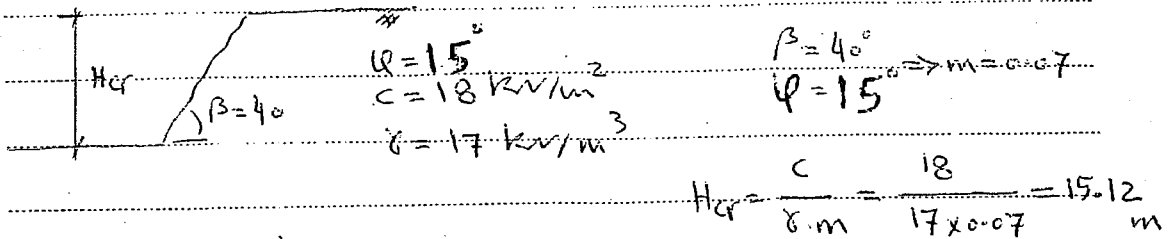 Hcr
β=40
φ=15°
c=18 kN/m²
γ=17 kN/m³
β=40°
φ=15° ⇒ m=0.07
Hcr = c / γ.m = 18 / 17×0.07 = 15.12 m